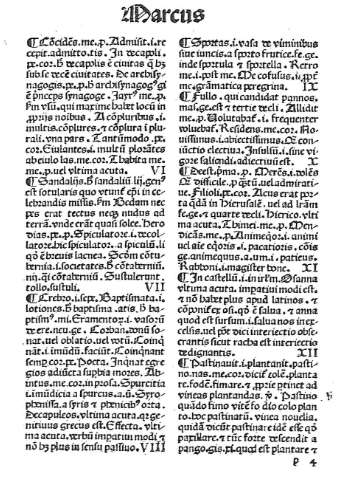 Marcus
¶ Cōcidēs.me.p. Admusit.i re
cepit.admitto.tis. In decapoli.
p.cor.h decapolis ē ciuitas q̄ hʒ
sub se decē ciuitates. De archisy-
nagogis.p.p.h archisynagogus gi
ē prīceps synagoge. Jayr9 me.p.
Fm vsū.qui maxime habet locū in
pprijs noibus. A cōpluribus.i
multis.cōplures.& cōplura ī plu-
rali.vna pars. Zantūmodo.p.
cor. Eiulantes.i multū plorātes
ab eiulo las.me.cor. Zabita me
me.p.vel vltima acuta. VI
¶ Sandalijs. sandaliū lij.genus
est sotularis quo vtunt ep̄i in ce-
lebrandis missis. Fm Bedam nec
pes erat tectus neqȝ nudus ad
terrā.vnde erāt quasi solee. Dero
dias.p.p. Spiculatore.i decol-
latore.hic spiculator.a spiculū.li
qd̄ ē breuis lacnea. Scōm cōtu-
bernia.i societates.h cōtaberniū.
nij.qi cōtaberniū. Sustulerunt.
tollo.sustuli. VII
¶ Crebro.i sepe. Baptismata.i
lotiones.h baptisma .atis.ō ba-
ptism9.mi. Eramentoȝ.i vasorū
de ere.neu.ge. Corban.donū so-
nat.vel oblatio.vel votū. Coinq̄
nāt.i imūdū faciūt. Coinquinant
semp cor.p. Poeta. Inquinat egre
gios adiūcta supbia mores. Ab
intus.me.cor.in prosa. Spurcitia
i imūdicia a spurcus.a.ū. Syro-
phenissa.a syris & phenicib9 orta.
Decapoleos.vltima acuta.qȝ ge-
nitiuus grecus est. Effecta. vlti-
ma acuta.verbū impatiui modi &
nō hʒ plus in sensu passiuo. VIII
¶ Sportas.i.vasa de viminibus
siue iuncis.a sporto frutice.fe.ge.
inde sportula & sportella. Retro
me.i post me. Me cofusus.i.p̄t
me.gramatica peregrina. IX
¶ Fullo. qui candidat pannos.
mai.ge.est & tertie decli. Allidit
me.p. Uolutabat.i. frequenter
voluebat. Residens.me.cor. No-
uissimus.i abiectissimus. Q con-
iūctio electiua. Insulsū.i sine vi-
gore saliendi.adiectiuū est. X
¶ Deest.p̄ma.p. Merēs.i dolēs
Q difficile.p quātū.vel admiratiue.
Filioli.p̄ cor. Actus erat por-
ta q̄dā in Hierusalē. vel ad Iram
fe.ge.& quarte decli. Hierico.vlti
ma acuta. Zbimei.me.p. Men-
dicās.me.p. Animeqȯ.i animi
vel aīe eqȯris.i. pacatioris. cōis
ge.animequus.a.um.i. patieus.
Rabboni.i magister bone. XI
¶ In castellū.i in vr̄sm. Osanna
vltima acuta. impatiui modi est.
& nō habet plus apud latinos.&
cōponit̄ ex osi.qd̄ ē salua.& anna
quod est sursum.i salua nos in ex-
celsis.vel pōt dici interiectio obse
crantis sicut racha est interiectio
dedignantis. XII
¶ Pastinauit.i plantauit.pasti-
no.nas.me.cor.vicīz colē.planta
re.fodē.fimare.& pprie ptinet ad
vineas plantandas. v̄. Pastino
quādo fimo vitē fo dio colo plan
to.hoc pastinatū. vinea nouella.
quidā dicūt pastinare idē esse qd̄
papillare.& tūc forte descendit a
pango.gis.pi.quod est plantare &
p 4